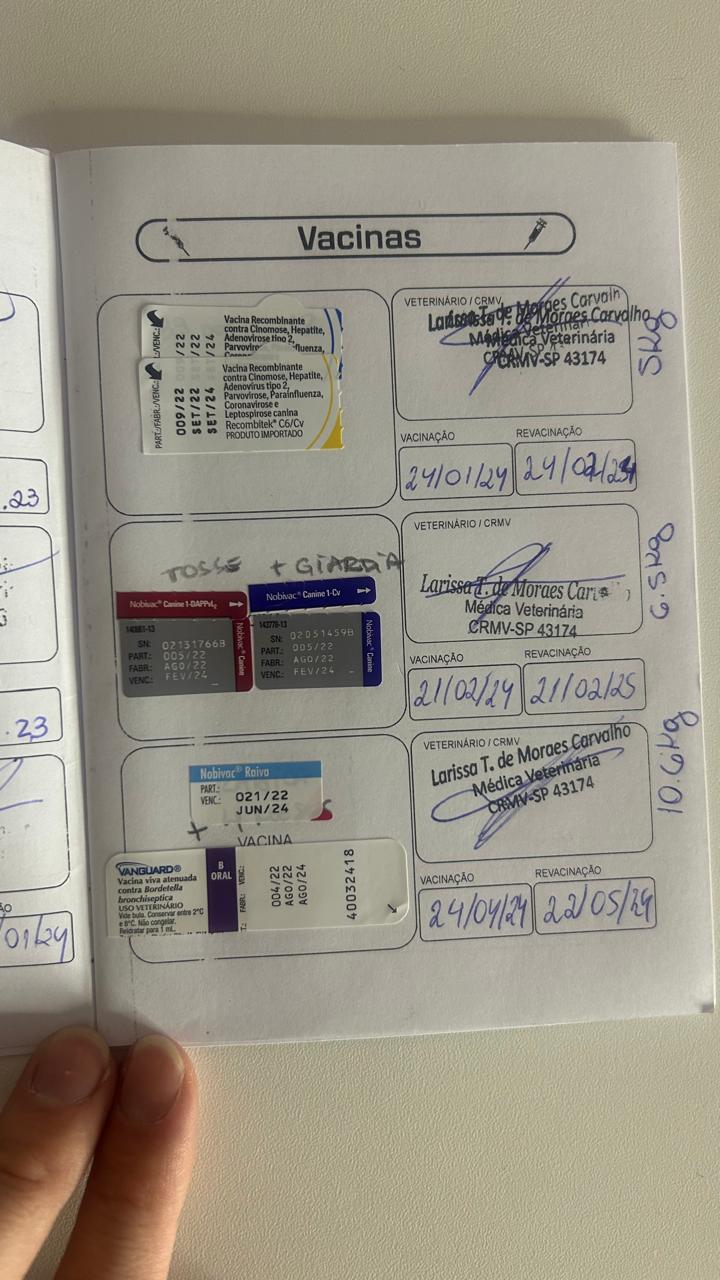 Vacinas
/22
/22
/24
Vacina Recombinante
contra Cinomose, Hepatite,
Adenovirose tipo 2,
PART./FABR./VENC.:
009/22
SET/22
SET/24
Vacina Recombinante
contra Cinomose, Hepatite,
Adenovírus tipo 2,
Parvovirose, Parainfluenza,
Coronavirose e
Leptospirose canina
Recombitek® C6/Cv
PRODUTO IMPORTADO
VETERINÁRIO / CRMV
Larissa T. de Moraes Carvalho
Médica Veterinária
CRMV-SP 43174
5Kg
VACINAÇÃO
REVACINAÇÃO
24/01/24
.23
TOSSE + GIARDIA
Nobivac® Canine 1-DAPPvL2
SN:
PART.: 005/22
FABR.: AGO/22
VENC.: FEV/24
Nobivac® Canine
Nobivac® Canine 1-Cv
SN:
PART.: 005/22
FABR.: AGO/22
VENC.: FEV/24
Nobivac® Canine
VETERINÁRIO / CRMV
Larissa T. de Moraes
Médica Veterinária
CRMV-SP 43174
6.5Kg
VACINAÇÃO
REVACINAÇÃO
21/02/24
21/02/25
.23
Nobivac® Raiva
PART.: 021/22
VENC.: JUN/24
+
VACINA
VANGUARD®
Vacina viva atenuada
contra Bordetella
bronchiseptica
USO VETERINÁRIO
Vide bula. Conservar entre 2°C
e 8°C. Não congelar.
Reidratar para 1 mL.
B
ORAL
FABR.: VENC.:
004/22
AGO/22
AGO/24
40032418
VETERINÁRIO / CRMV
Larissa T. de Moraes Carvalho
Médica Veterinária
CRMV-SP 43174
10.6Kg
VACINAÇÃO
REVACINAÇÃO
24/04/24
22/05/24
01/24